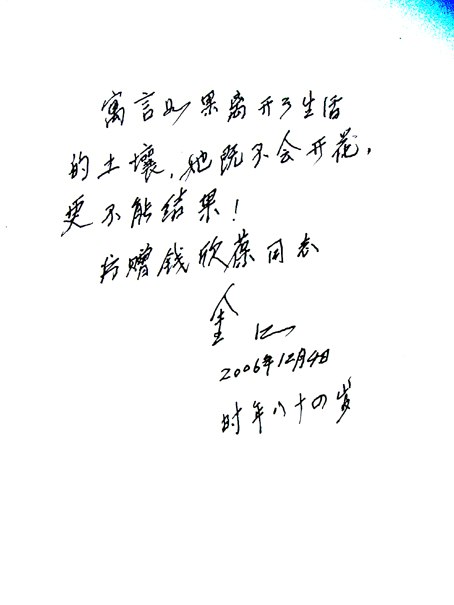 寓言如果离开了生活
的土壤，她既不会开花，
更不能结果！
书赠钱欣葆同志
金江
2006年12月4日
时年八十四岁